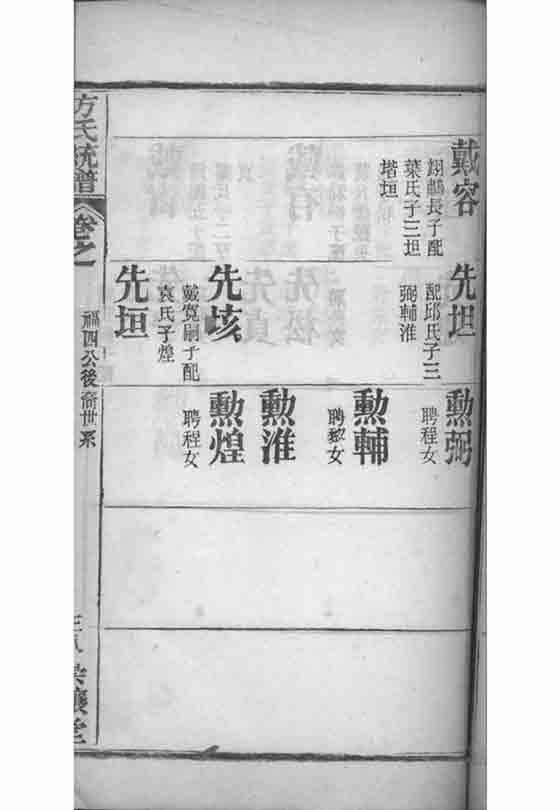 戴容
翊鵬長子配
葉氏子三坦
垣
先坦
配邱氏子三
弼輔淮
先垓
戴寬嗣子配
袁氏子煌
先垣
勲弼
聘程女
勲輔
聘黎女
勲淮
勲煌
聘程女
方氏統譜
卷之
福四公後裔世系